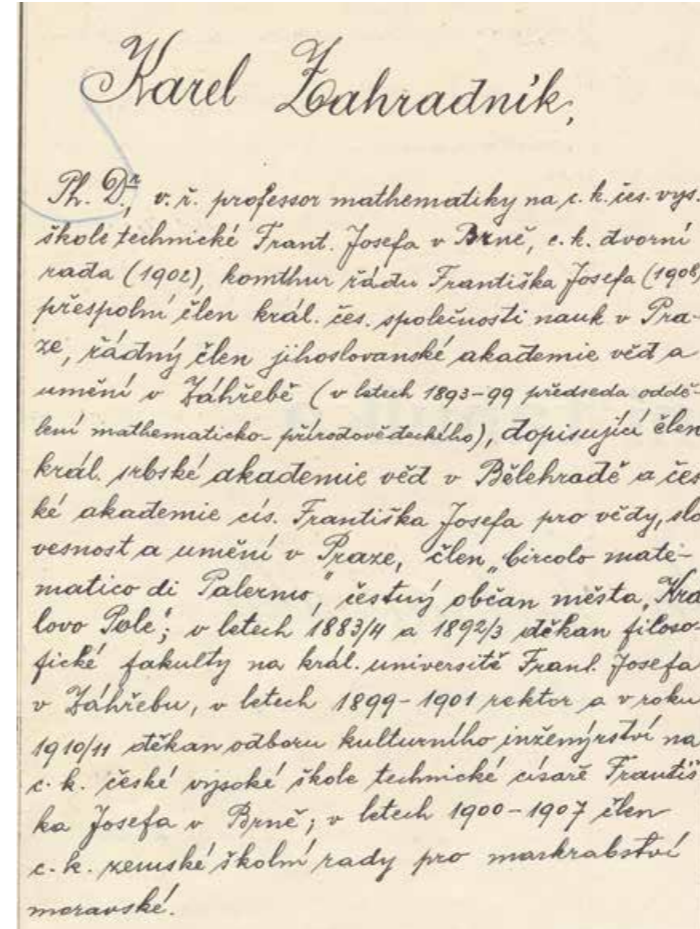 Karel Zahradník,
Ph. Dr., v. ř. professor mathematiky na c. k. čes. vys.
škole technické Frant. Josefa v Brně, c. k. dvorní
rada (1902), komthur řádu Františka Josefa (1908)
přespolní člen král. čes. společnosti nauk v Pra-
ze, řádný člen jihoslovanské akademie věd a
umění v Záhřebě (v letech 1893-99 předseda oddě-
lení mathematicko-přírodovědeckého), dopisující člen
král. srbské akademie věd v Bělehradě a čes
ké akademie cís. Františka Josefa pro vědy, slo
vesnost a umění v Praze, člen „Circolo mate-
matico di Palermo“, čestný občan města „Kra
lovo Pole“; v letech 1883/4 a 1892/3 děkan filoso-
fické fakulty na král. universitě Frant. Josefa
v Záhřebu, v letech 1899-1901 rektor a v roku
1910/11 děkan odboru kulturního inženýrství na
c. k. české vysoké škole technické císaře Františ
ka Josefa v Brně; v letech 1900-1907 člen
c. k. zemské školní rady pro markrabství
moravské.